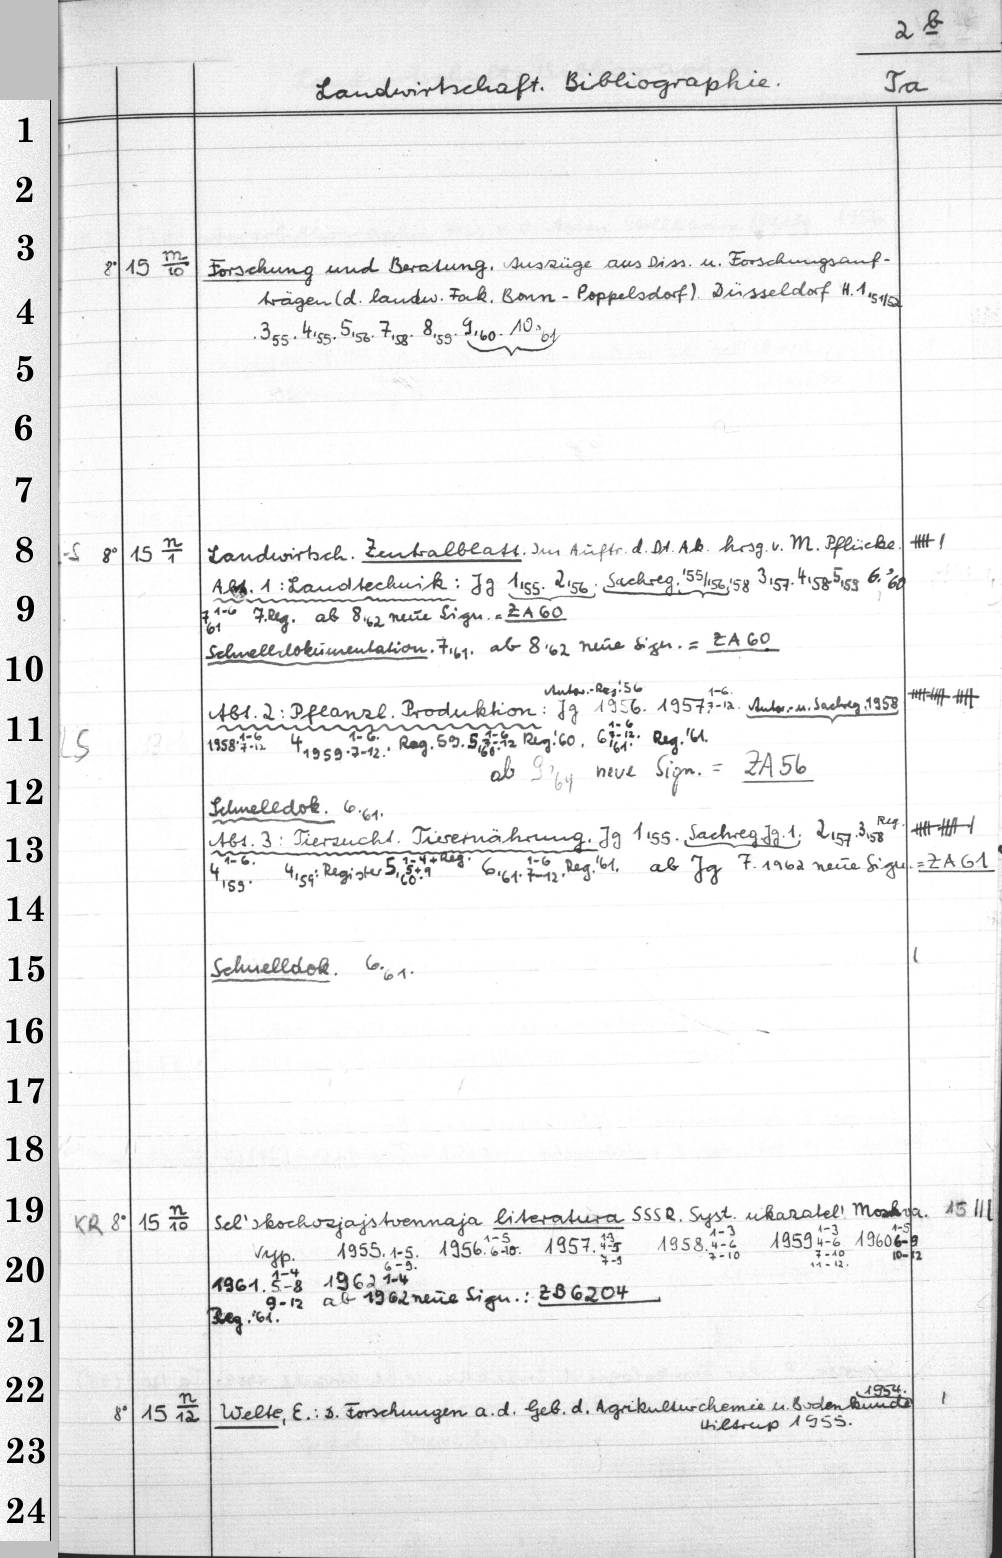 2 b
Landwirtschaft. Bibliographie. Ta
1
2
3
8° 15 m/10 Forschung und Beratung. Auszüge aus Diss. u. Forschungsauf-
trägen (d. landw. Fak. Bonn - Poppelsdorf) Düsseldorf H. 1,51/52
4
.3,55. 4,55. 5,56. 7,58. 8,59. 9,60. 10,'61
5
6
7
8
-S 8° 15 n/1 Landwirtsch. Zentralblatt. Im Auftr. d. Dt. Ak. hrsg. v. M. Pflücke.
Abt. 1: Landtechnik: Jg 1,55. 2,56. Sachreg. '55/'56,'58 3,57. 4,58 5,59 6,'60
9
7,61 1-6 7.Reg. ab 8,'62 neue Sign. = ZA60
Schnelldokumentation. 7,61. ab 8,'62 neue Sign. = ZA60
10
Autor.-Reg.'56
Abt. 2: Pflanzl. Produktion: Jg 1956. 1957 1-6. 7-12. Autor- u. Sachreg. 1958
11
LS 1958. 1-6 7-12 4,1959. 1-6. 7-12. Reg. 59. 5,60. 1-6 7-12 Reg.'60. 6,61. 1-6 7-12. Reg.'61.
ab 9,'64 neue Sign. = ZA56
12
Schnelldok. 6,61.
13
Abt. 3: Tierzucht. Tierernährung. Jg 1,55. Sachreg Jg. 1. 2,57. 3,58 Reg.
4,59. 1-6. 4,59: Register 5,60. 1-4+Reg. 5+9 6,61. 1-6 7-12. Reg.'61. ab Jg 7.1962 neue Sign. = ZA61
14
15
Schnelldok. 6,61.
16
17
18
19
KR 8° 15 n/10 Sel'skochozjajstvennaja literatura SSSR. Syst. ukazatel! Moskva. 15 III
Vyp. 1955. 1-5. 6-9. 1956. 1-5 6-10. 1957. 1-3 4-5 7-9 1958. 1-3 4-6 7-10 1959 1-3 4-6 7-10 11-12. 1960 1-5 6-9 10-12
20
1961. 1-4 5-8 9-12 1962 1-4
ab 1962 neue Sign.: ZB6204
Reg.'61.
21
22
8° 15 n/12 Welte, E.: D. Forschungen a. d. Geb. d. Agrikulturchemie u. Bodenkunde 1954.
Hiltrup 1955.
23
24